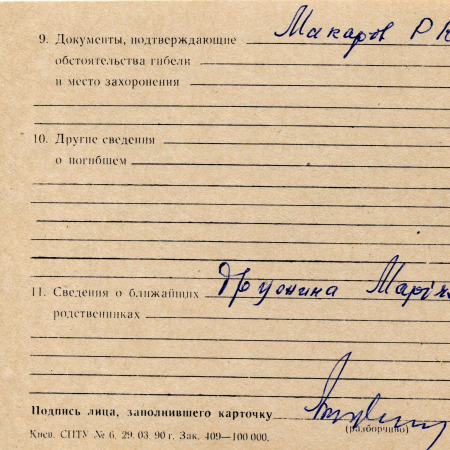 9. Документы, подтверждающие Макаров Р К
обстоятельства гибели
и место захоронения
10. Другие сведения
о погибшем
11. Сведения о ближайших
родственниках
Подпись лица, заполнившего карточку
(разборчиво)
Киев. СПТУ № 6. 29. 03. 90 г. Зак. 409—100 000.